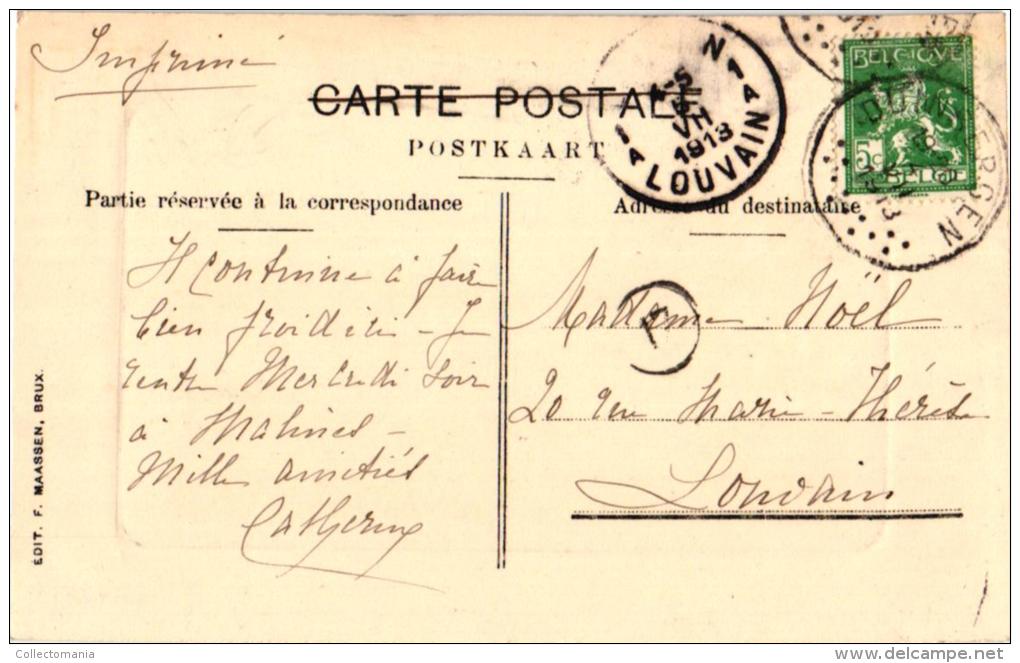 Imprimé
CARTE POSTALE
POSTKAART
N
4-5
VII
1913
1A LOUVAIN 1A
BELGIQUE
5c
BELGIË
Partie réservée à la correspondance
Adresse du destinataire
Il continue à faire
bien froid ici - Je
rentre Mercredi soir
à Malines -
Mille amitiés
Catherine
Madame Noël
20 rue Marie-Thérèse
Louvain
ÉDIT. F. MAASSEN, BRUX.
Collectomania
delcampe.net